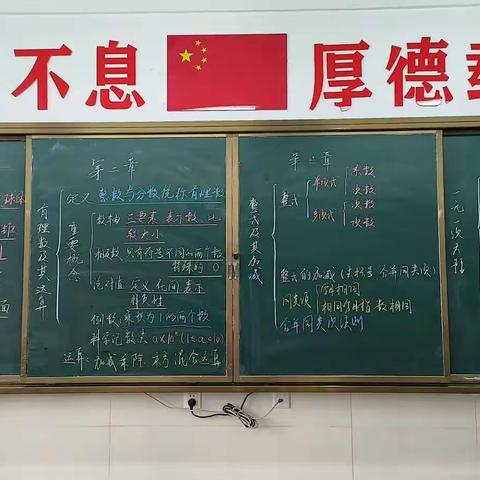 不息
厚德
球体
面
第二章
有理数及其运算
定义 整数与分数统称有理数
重要概念
数轴 三要素 表示数 比
较大小
相反数 只有符号不同的两个数
特殊的 0
绝对值 定义 化简 表示
非负性
倒数:乘积为1的两个数
科学记数法 a×10ⁿ(1≤a<10)
运算:加减乘除 乘方 混合运算
第三章
整式及其加减
整式
单项式
系数
次数
多项式
项数
次数
整式的加减(去括号 合并同类项)
同类项
字母相同
相同字母指数相同
合并同类项法则
一元一次方程